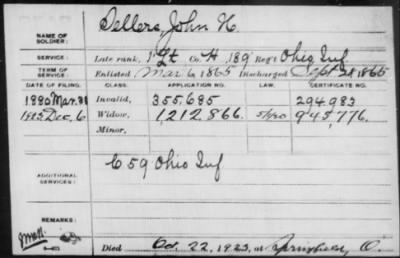 NAME OF SOLDIER: Sellers, John H.
SERVICE: Late rank, 1" Lt Co. H, 189 Reg't Ohio Inf
TERM OF SERVICE: Enlisted Mar 6, 1865 Discharged Sept 28 1865
DATE OF FILING. CLASS. APPLICATION NO. LAW. CERTIFICATE NO.
Invalid, 355,685 294,983
1923 Dec, 6 Widow, 1,212,866. 945,776.
Minor,
ADDITIONAL SERVICES: C 59 Ohio Inf
REMARKS:
Died Oct. 22, 1923, at Springfield, O.